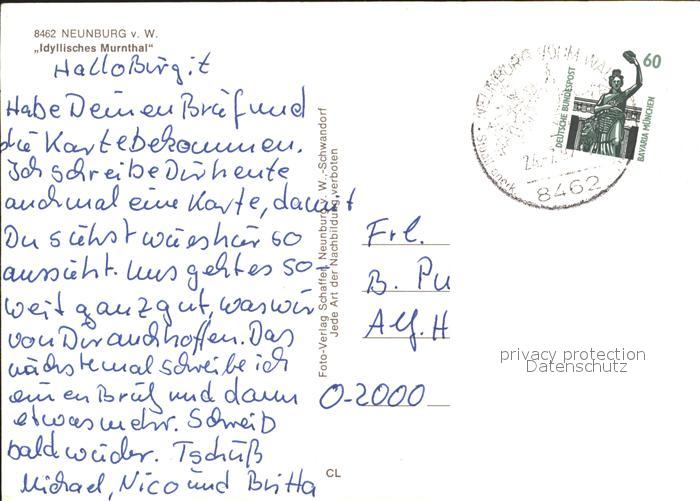 8462 NEUNBURG v. W.
„Idyllisches Murnthal"
Hallo Birgit
Habe Deinen Brief und
die Karte bekommen.
Ich schreibe Dir heute
auch mal eine Karte, damit
Du siehst wie es hier so
aussieht. Uns geht es so-
weit ganz gut, was wir
von Dir auch hoffen. Das
nächste mal schreibe ich
einen Brief und dann
etwas mehr. Schreib
bald wieder. Tschüß
Michael, Nico und Britta
Foto-Verlag Schaffer, Neunburg v. W.-Schwandorf
Jede Art der Nachbildung verboten
CL
NEUNBURG VORM WALD
8462
60
DEUTSCHE BUNDESPOST
BAVARIA MÜNCHEN
Frl.
B. Pu
Alf. H
O-2000
privacy protection
Datenschutz